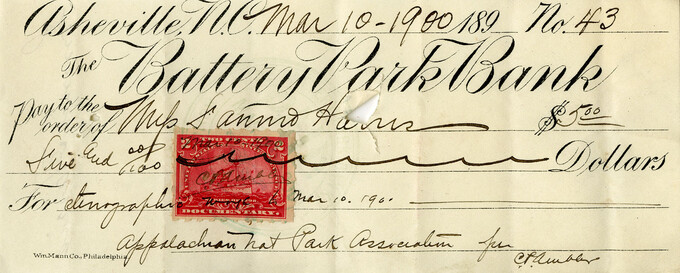 Asheville, N.C. Mar 10-1900 189 No. 43
The Battery Park Bank
Pay to the order of Miss Fannie Harris $5.00
Five and 00/100 Dollars
TWO CENTS
2 2
C.P. Ambler
DOCUMENTARY.
For stenographic Mar 10. 1900
Appalachian Nat Park Association per
C.P. Ambler
Wm. Mann Co., Philadelphia